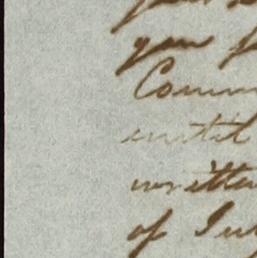 you
Comm
until
written
of Ju